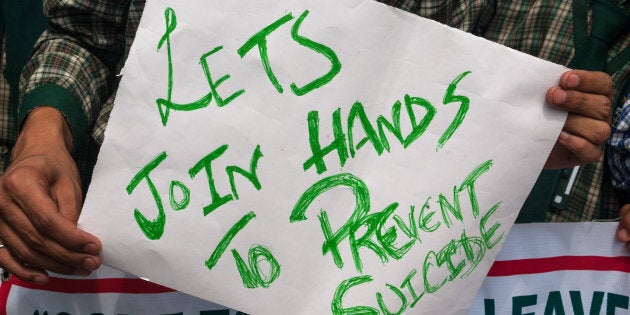 LETS
JOIN HANDS
TO PREVENT
SUICIDE
LEAVE